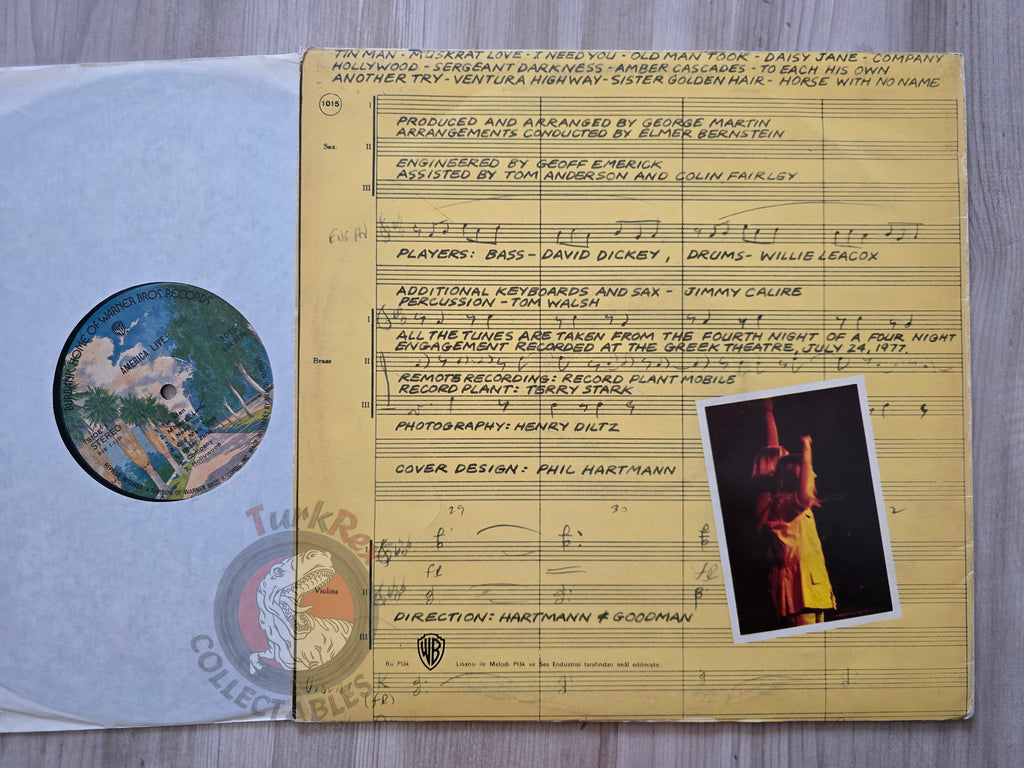 TIN MAN - MUSKRAT LOVE - I NEED YOU - OLD MAN TOOK - DAISY JANE - COMPANY
HOLLYWOOD - SERGEANT DARKNESS - AMBER CASCADES - TO EACH HIS OWN
ANOTHER TRY - VENTURA HIGHWAY - SISTER GOLDEN HAIR - HORSE WITH NO NAME
1015
I
PRODUCED AND ARRANGED BY GEORGE MARTIN
ARRANGEMENTS CONDUCTED BY ELMER BERNSTEIN
Sax.
II
ENGINEERED BY GEOFF EMERICK
ASSISTED BY TOM ANDERSON AND COLIN FAIRLEY
III
PLAYERS: BASS - DAVID DICKEY, DRUMS - WILLIE LEACOX
ADDITIONAL KEYBOARDS AND SAX - JIMMY CALIRE
PERCUSSION - TOM WALSH
I
ALL THE TUNES ARE TAKEN FROM THE FOURTH NIGHT OF A FOUR NIGHT
ENGAGEMENT RECORDED AT THE GREEK THEATRE, JULY 24, 1977.
Brass
II
REMOTE RECORDING: RECORD PLANT MOBILE
RECORD PLANT: TERRY STARK
III
PHOTOGRAPHY: HENRY DILTZ
COVER DESIGN: PHIL HARTMANN
29 30
I
Violins
II
DIRECTION: HARTMANN & GOODMAN
III
Bu Plâk WB Lisansı ile Melodi Plâk ve Ses Endüstrisi tarafından imâl edilmiştir.
(fl)
BURBANK, HOME OF WARNER BROS. RECORDS
WB
AMERICA LIVE
1015
SIDE 1
STEREO
Company
7. Hollywood
TurkRex
COLLECTABLES